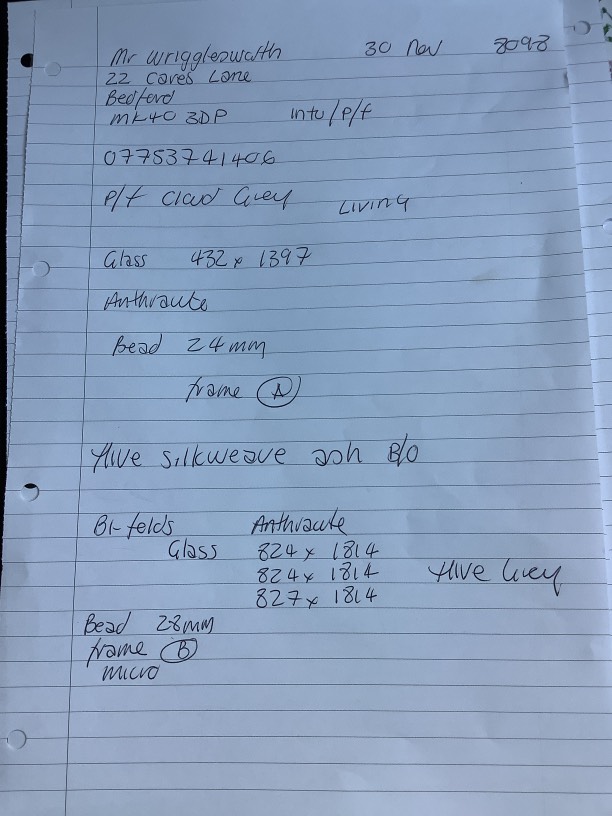 Mr Wrigglesworth 30 Nov 8098
22 Caves Lane
Bedford
MK40 3DP Intu/P/f
07753741406
P/f Cloud Grey LIVING
Glass 432 x 1397
Anthracite
Bead 24mm
frame A
Hive Silkweave ash B/O
Bi-folds Anthracite
Glass 824 x 1814
824 x 1814 Hive Grey
827 x 1814
Bead 28mm
frame B
micro